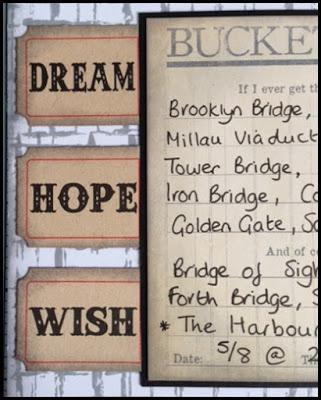 DREAM
HOPE
WISH
BUCKET
If I ever get th
Brooklyn Bridge,
Millau Viaduct
Tower Bridge,
Iron Bridge, Co
Golden Gate, Sa
And of co
Bridge of Sigh
Forth Bridge, S
* The Harbour
Date: 5/8 @ 2